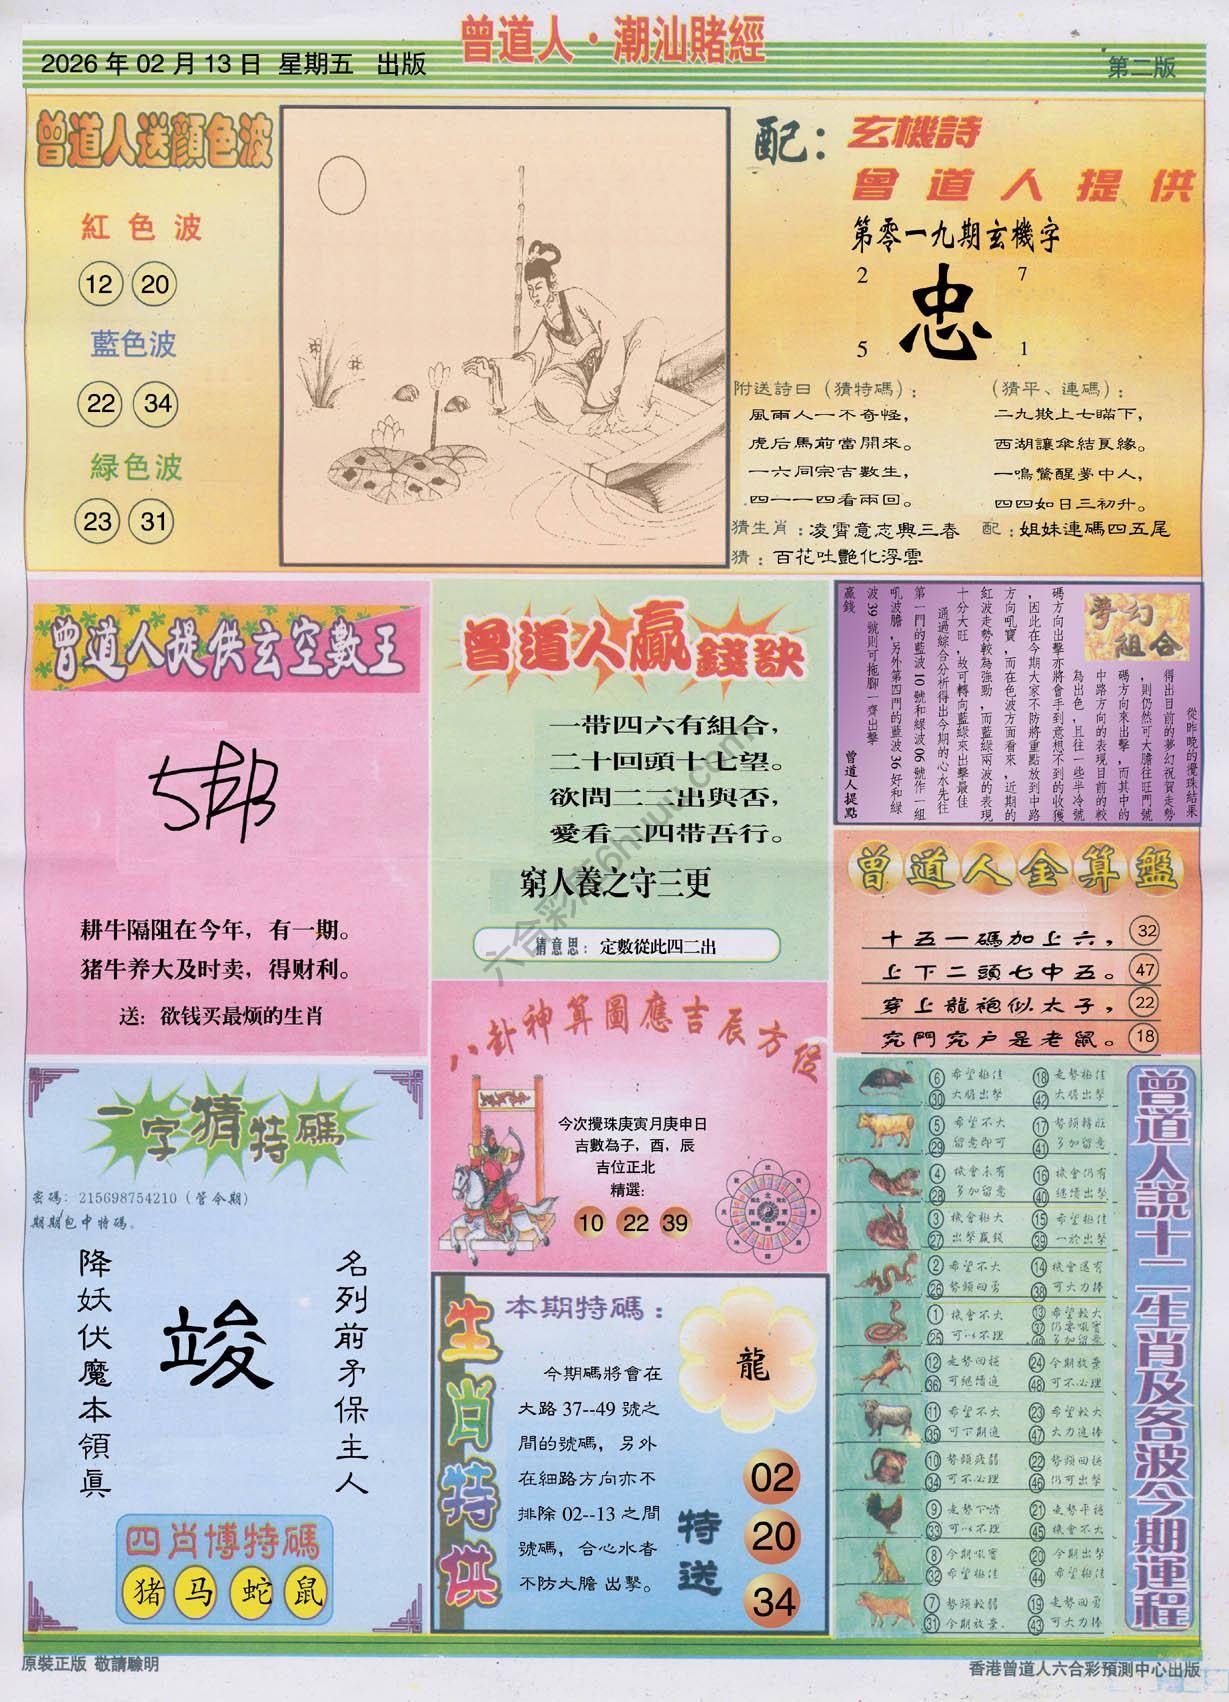 曾道人·潮汕賭經
2026年02月13日 星期五 出版
第二版
曾道人送顏色波
紅色波
12 20
藍色波
22 34
緑色波
23 31
配：玄機詩
曾道人提供
第零一九期玄機字
2 7
忠
5 1
附送詩曰（猜特碼）：
風雨人一不奇怪，
虎后馬前當開來。
一六同宗吉數生，
四一一四看兩回。
（猜平、連碼）：
二九欺上七瞞下，
西湖讓傘結良緣。
一鳴驚醒夢中人，
四四如日三初升。
猜生肖：凌霄意志興三春
配：姐妹連碼四五尾
猜：百花吐艷化浮雲
曾道人提供玄空數王
耕牛隔阻在今年，有一期。
猪牛养大及时卖，得财利。
送：欲钱买最烦的生肖
曾道人贏錢訣
一带四六有組合，
二十回頭十七望。
欲問二二出與否，
愛看一四带吾行。
窮人養之守三更
猜意思：定數從此四二出
夢幻組合
從昨晚的攪珠結果
得出目前的夢幻祝賀走勢
，則仍然可大膽往旺門號
碼方向來出擊，而其中的
中路方向的表現目前的較
為出色，且往一些半冷號
碼方向出擊亦將會手到意想不到的收獲
，因此在今期大家不防將重點放到中路
方向吼寶，而在色波方面看來，近期的
紅波走勢較為強勁，而藍綠兩波的表現
十分大旺，故可轉向藍綠來出擊最佳
通過綜合分析得出今期的心水先往
第一門的藍波10號和綠波06號作一組
吼波膽，另外第四門的藍波36好和綠
波39號則可拖腳一齊出擊
贏錢
曾道人提點
曾道人金算盤
十五一碼加上六， 32
上下二頭七中五。 47
穿上龍袍似太子， 22
究門究户是老鼠。 18
八卦神算圖應吉辰方位
今次攪珠庚寅月庚申日
吉數為子，酉，辰
吉位正北
精選：
10 22 39
一字猜特碼
密碼：215698754210（管令期）
期期包中特碼。
名列前矛保主人
竣
降妖伏魔本領眞
四肖博特碼
猪 马 蛇 鼠
生肖特供
本期特碼：
龍
今期碼將會在
大路37--49號之
間的號碼，另外
在細路方向亦不
排除02--13之間
號碼，合心水者
不防大膽出擊。
特送
02
20
34
曾道人説十二生肖及各波今期運程
⑥ 希望極佳 ⑱ 走勢極佳
㉚ 大膽出擊 ㊷ 大膽出擊
⑤ 希望不大 ⑰ 勢頭轉旺
㉙ 留意即可 ㊶ 多加留意
④ 機會未有 ⑯ 機會仍有
㉘ 多加留意 ㊵ 继續出擊
③ 機會極大 ⑮ 希望極佳
㉗ 出擊贏錢 ㊴ 一於出擊
② 希望不大 ⑭ 機會還有
㉖ 勢頭回勇 ㊳ 可大力捧
① 機會不大 ⑬ 希望較大
㊲ 仍要吼寶
㉕ 可以不理 ㊾ 多加留意
⑫ 走勢回穩 ㉔ 今期放棄
㊱ 可繼續追 ㊽ 可不必理
⑪ 希望不大 ㉓ 希望較大
㉟ 可下期追 ㊼ 大力追捧
⑩ 勢頭疲弱 ㉒ 勢頭回穩
㉞ 可不必理 ㊻ 仍可出擊
⑨ 走勢下滑 ㉑ 走勢平穩
㉝ 可以不理 ㊺ 機會不大
⑧ 今期吼寶 ⑳ 今期出擊
㉜ 希望極佳 ㊹ 希望極佳
⑦ 勢頭較弱 ⑲ 走勢回勇
㉛ 今期放棄. ㊸ 可大力捧
原裝正版 敬請驗明
香港曾道人六合彩預測中心出版